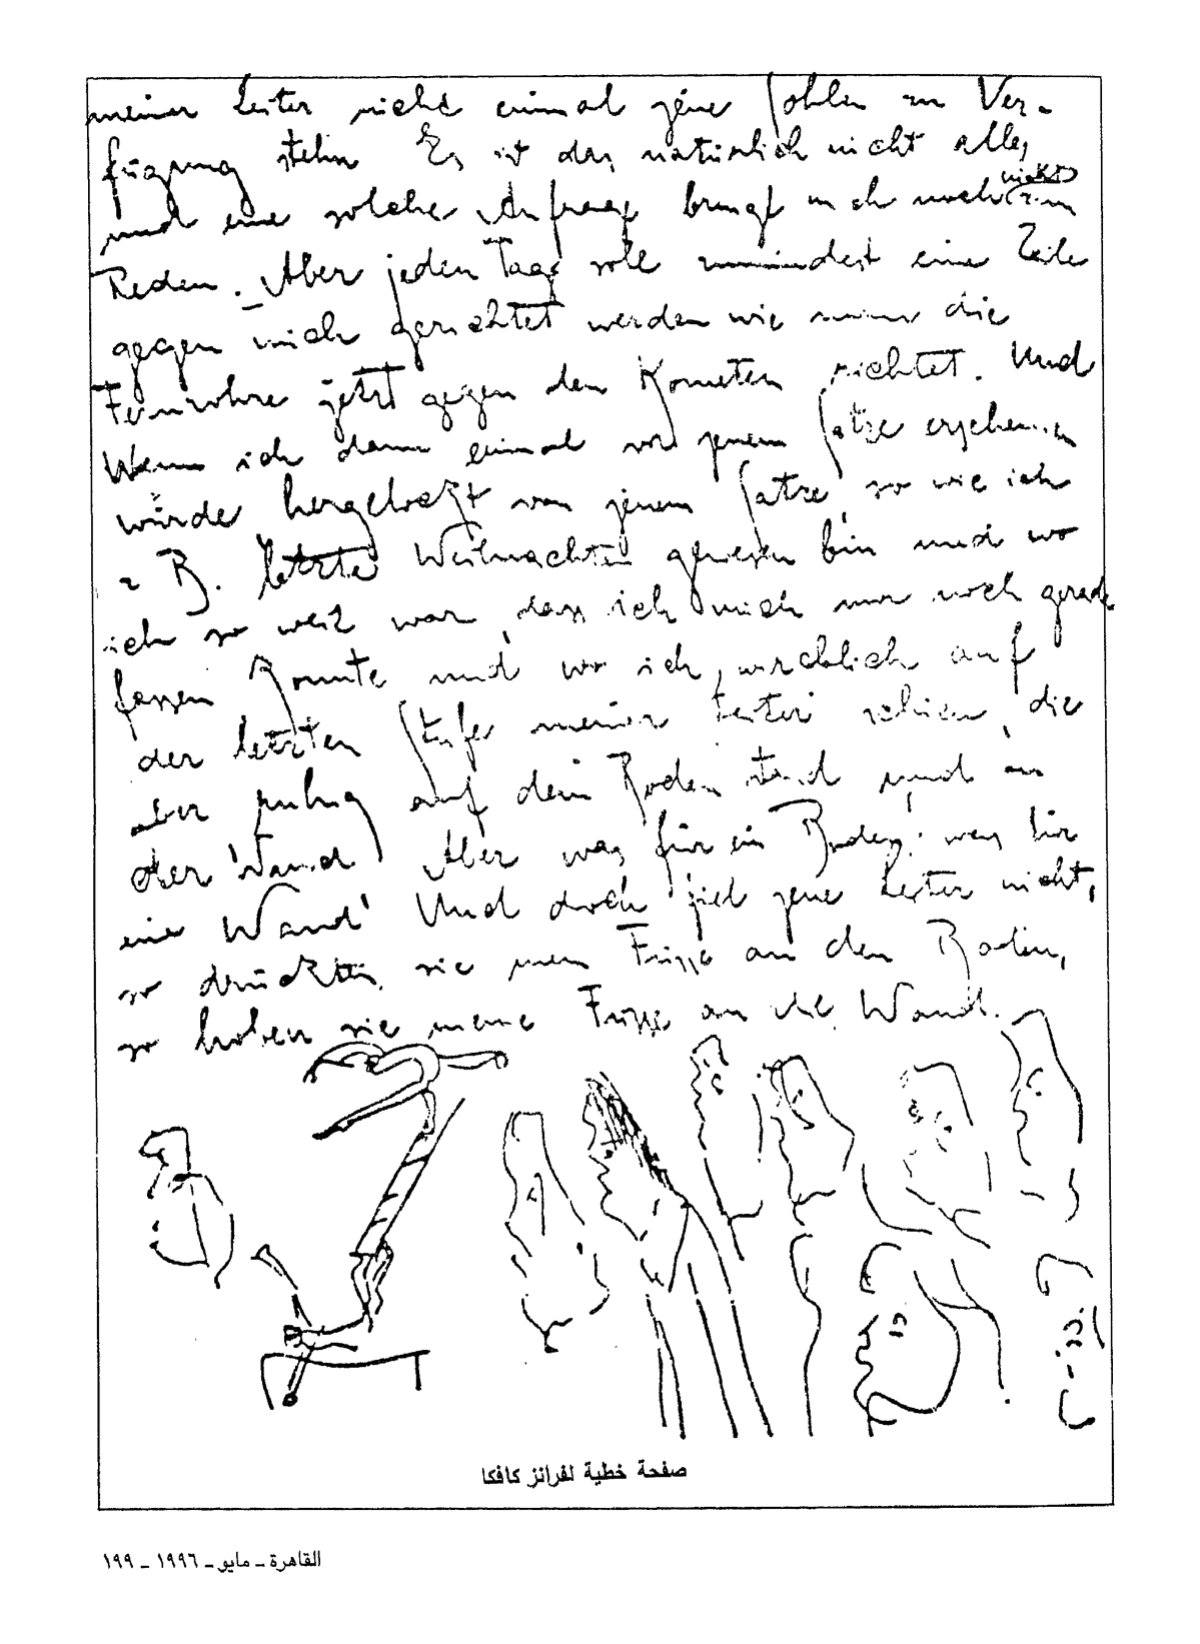 meiner Leiter nicht einmal jene Sohlen zu Ver-
fügung stehn Es ist das natürlich nicht alles,
und eine solche Anfrage bringt mich noch nicht zum
Reden. Aber jeden Tag soll zumindest eine Zeile
gegen mich gerichtet werden wie man die
Fernrohre jetzt gegen den Kometen richtet. Und
wenn ich dann einmal vor jenem Satze erscheinen
würde hergelockt von jenem Satze, so wie ich
z B. letzte Weihnachten gewesen bin und wo
ich so weit war, dass ich mich nur noch gerade
fassen konnte und wo ich wirklich auf
der letzten Stufe meiner Leiter schien, die
aber ruhig auf dem Boden stand und an
der Wand Aber was für ein Boden! was für
eine Wand! Und doch fiel jene Leiter nicht,
so drückten sie meine Füsse an den Boden,
so hoben sie meine Füsse an die Wand.
صفحة خطية لفرانز كافكا
القاهرة ـ مايو ـ ١٩٩٦ ـ ١٩٩